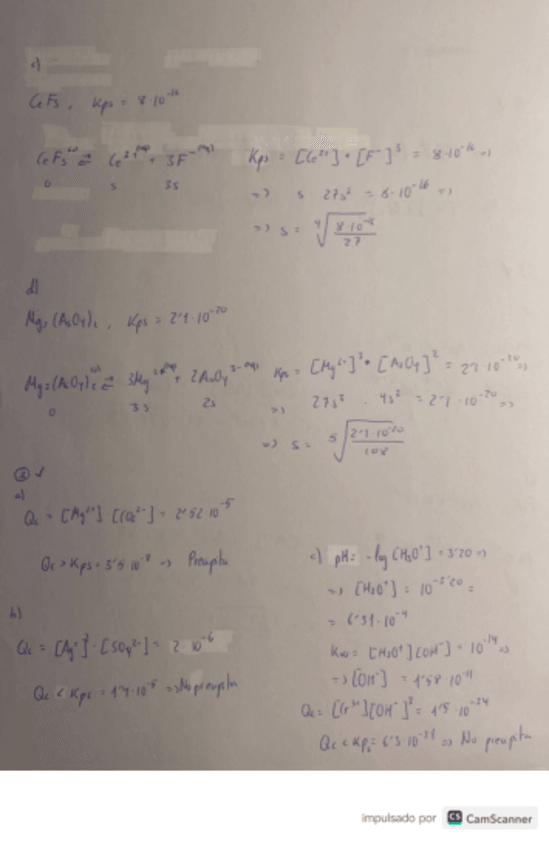 c)
CeF3, Kps = 8·10^-16
CeF3(s) ⇌ Ce3+(aq) + 3F-(aq)
0 s 3s
Kps = [Ce3+]·[F-]^3 = 8·10^-16 =>
=> s 27s^3 = 8·10^-16 =>
=> s = ⁴√(8·10^-16/27)
d)
Mg3(AsO4)2, Kps = 2'1·10^-20
Mg3(AsO4)2(s) ⇌ 3Mg2+(aq) + 2AsO4 3-(aq)
0 3s 2s
Kps = [Mg2+]^3·[AsO4]^2 = 2'1·10^-20 =>
=> 27s^3 · 4s^2 = 2'1·10^-20 =>
=> s = ⁵√(2'1·10^-20/108)
a)
Qc = [Mg2+][CO3 2-] = 2'52 10^-5
Qc > Kps = 3'5 10^-8 => Precipita
b)
Qc = [Ag+]^2·[SO4 2-] = 2 10^-6
Qc < Kps = 1'4·10^-5 => No precipita
c) pH = -log [H3O+] = 3'20 =>
=> [H3O+] = 10^-3'20 =
= 6'31·10^-4
Kw = [H3O+][OH-] = 10^-14 =>
=> [OH-] = 1'58 10^-11
Qc = [Cr3+][OH-]^3 = 1'5·10^-34
Qc < Kps = 6'3 10^-31 => No precipita
impulsado por CS CamScanner